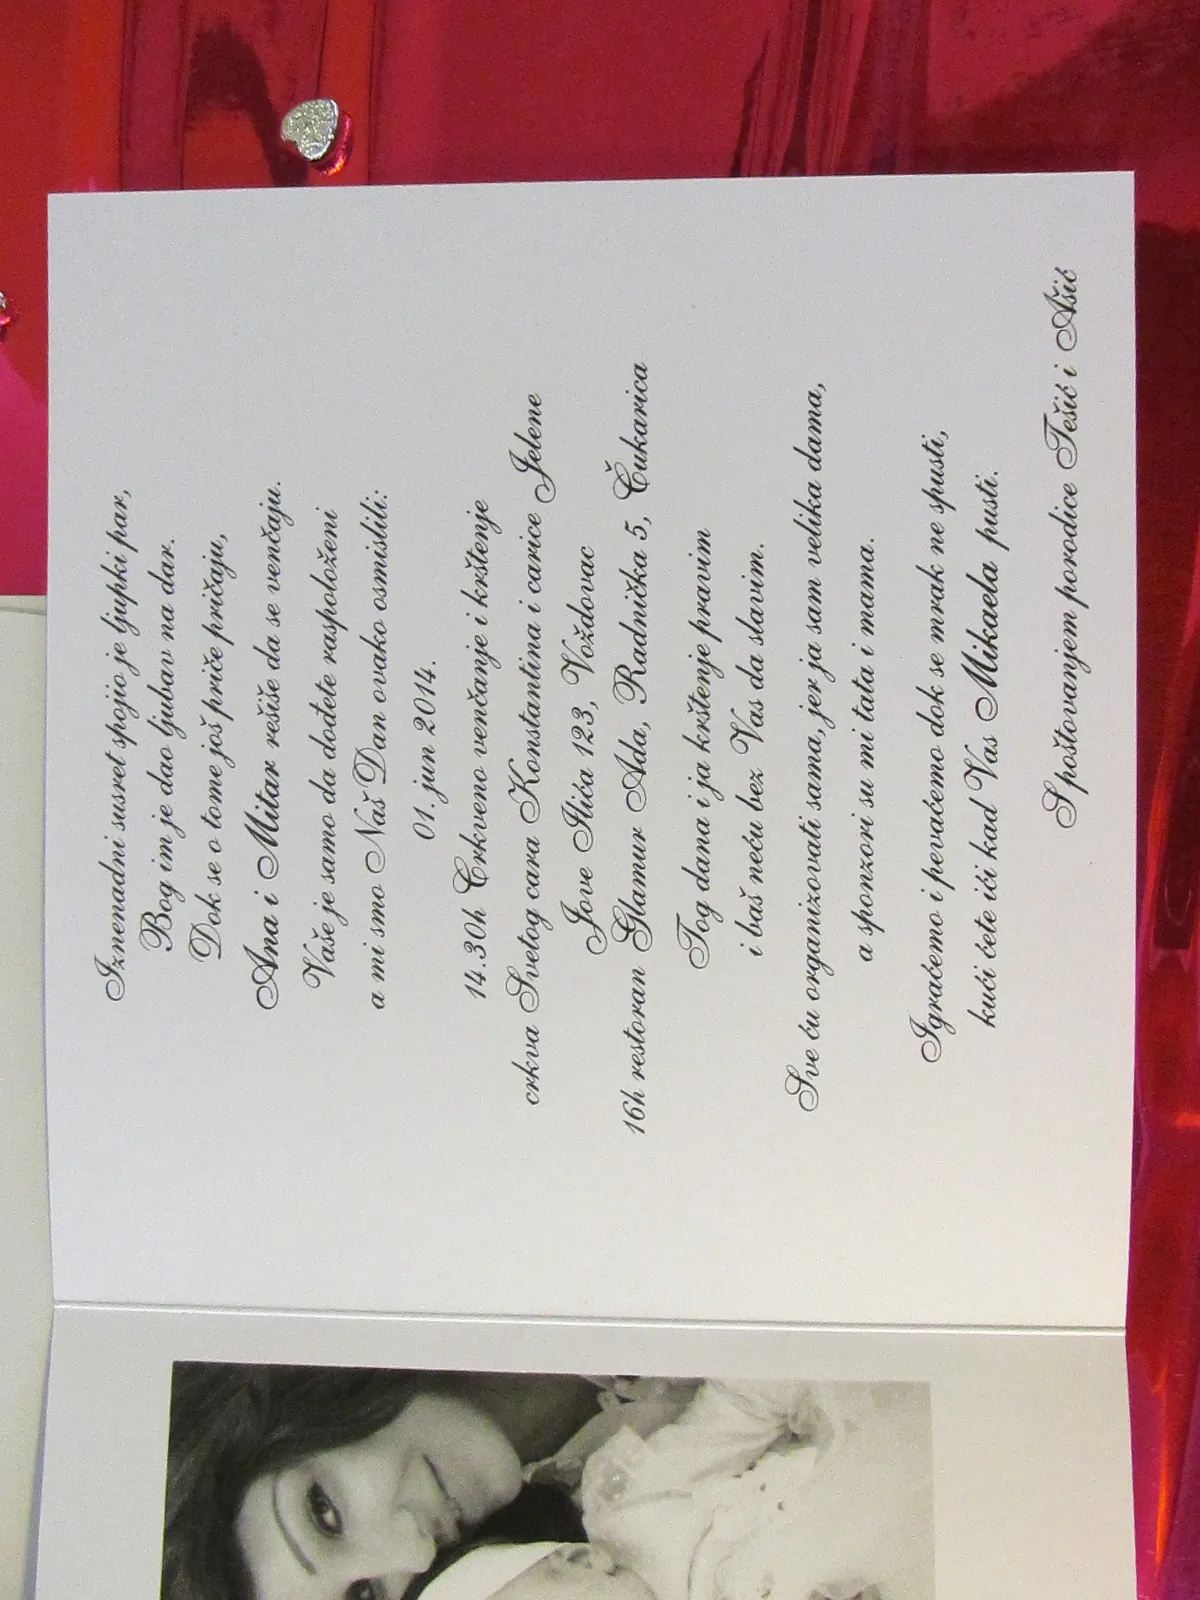 Iznenadni susret spojio je ljupki par,
Bog im je dao ljubav na dar.
Dok se o tome još priče pričaju,
Ana i Mitar rešiše da se venčaju.
Vaše je samo da dođete raspoloženi
a mi smo Naš Dan ovako osmislili:
01. jun 2014.
14.30h Crkveno venčanje i krštenje
crkva Svetog cara Konstantina i carice Jelene
Jove Ilića 123, Voždovac
16h restoran Glamur Ada, Radnička 5, Čukarica
Tog dana i ja krštenje pravim
i baš neću bez Vas da slavim.
Sve ću organizovati sama, jer ja sam velika dama,
a sponzori su mi tata i mama.
Igraćemo i pevaćemo dok se mrak ne spusti,
kući ćete ići kad Vas Mikaela pusti.
S poštovanjem porodice Tešić i Ašić